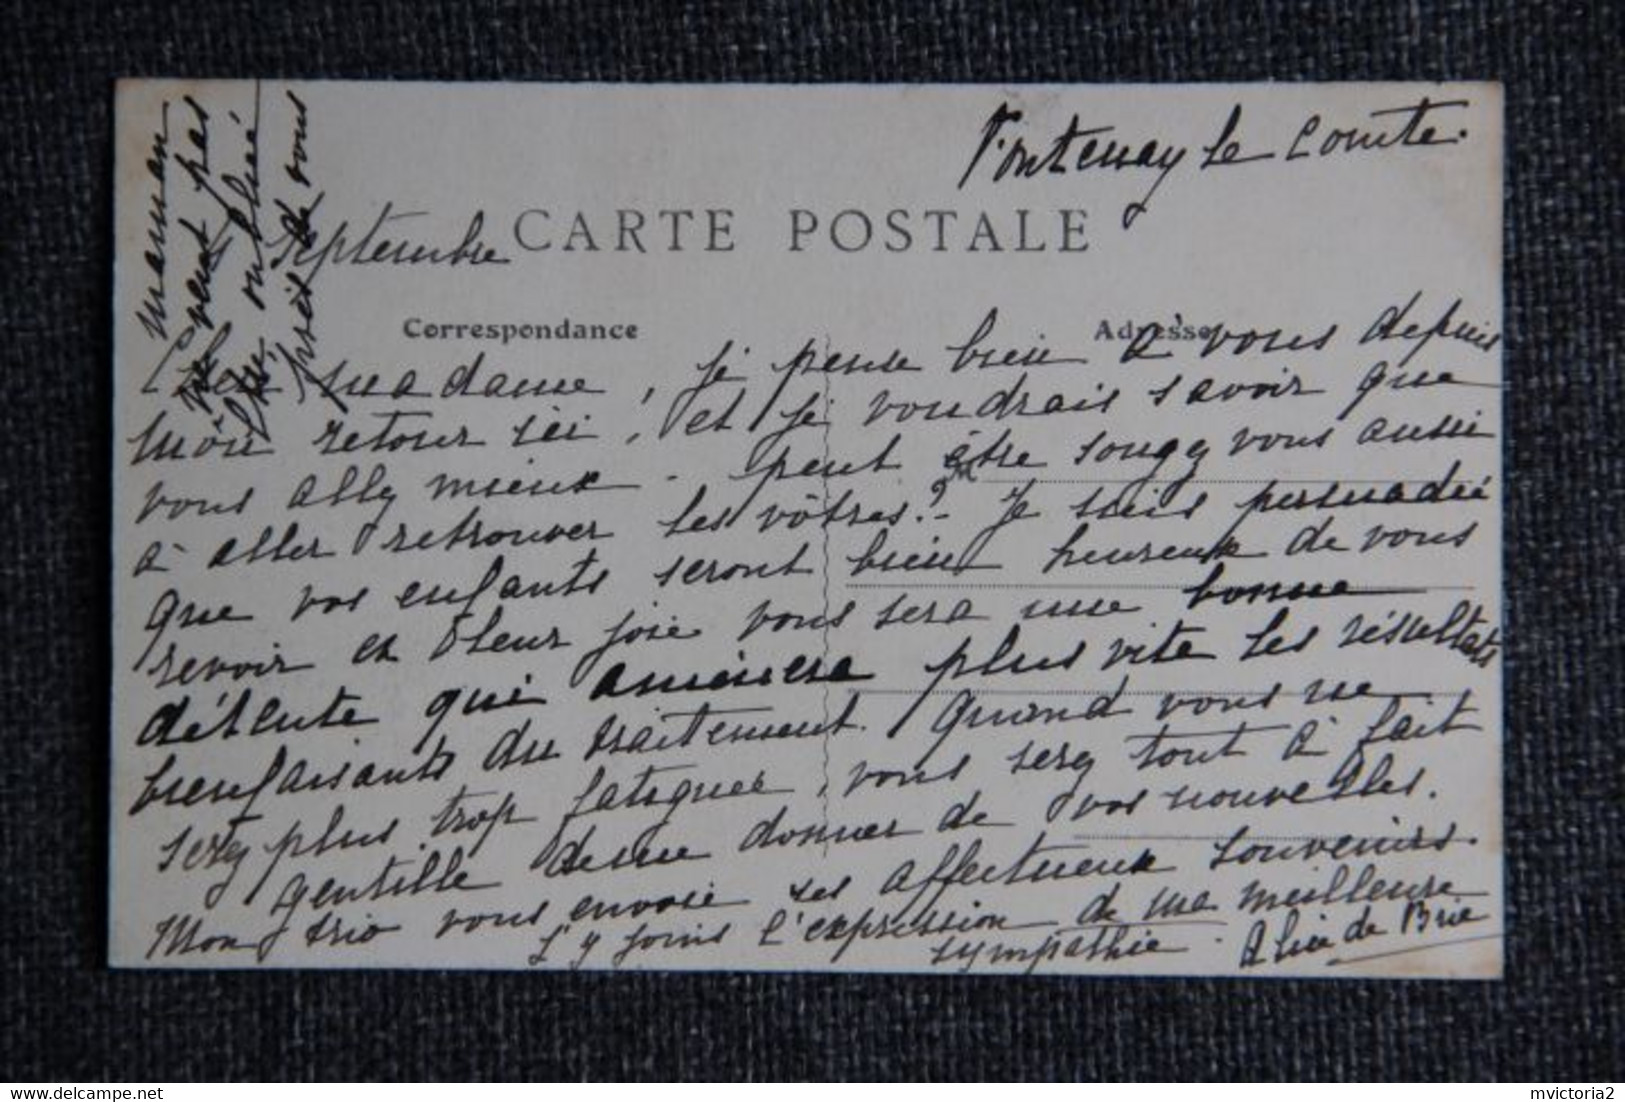 Fontenay le Comte.
CARTE POSTALE
4 Septembre
Correspondance
Adresse
Chère madame, je pense bien à vous depuis
mon retour ici, et je voudrais savoir que
vous allez mieux - peut être songez vous aussi
à aller retrouver les vôtres? - Je suis persuadée
que vos enfants seront bien heureux de vous
revoir et leur joie vous sera une bonne
détente qui amènera plus vite les résultats
bienfaisants du traitement. Quand vous ne
serez plus trop fatiguée, vous serez tout à fait
gentille de me donner de vos nouvelles.
Mon trio vous envoie ses affectueux souvenirs.
J'y joins l'expression de ma meilleure
sympathie. Alice de Brie
maman
ne veut pas
être oubliée
près de vous
mvictoria2